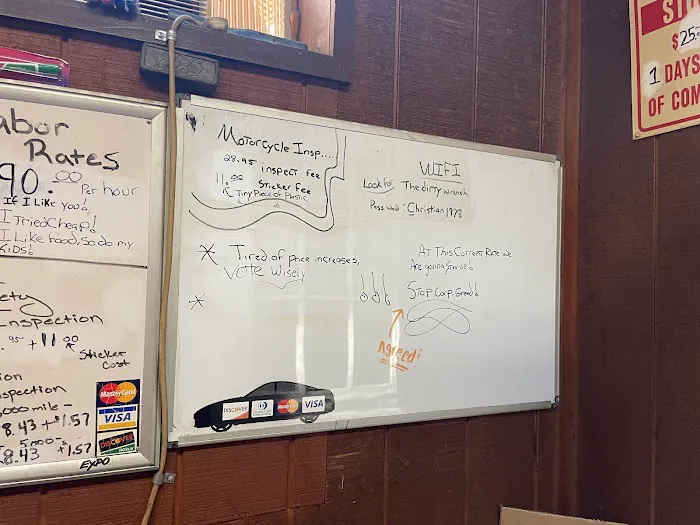 abor
Rates
90.00
Per hour
If I Like you!
I Tried Cheap!
I Like food, So do my
KiDS!
ety
Inspection
.95 + 11.00
Sticker
Cost
ion
spection
,000 mile -
8.43 + $1.57
5,000-
8.43 +1.57
MasterCard
VISA
DISCOVER
EXPO
Motorcycle Insp....
28.95 inspect fee
11.00 Sticker fee
Tiny Piece of Plastic
WIFI
Look for The dirty wrench
Pass word: Christian1978
* Tired of price increases,
Vote Wisely
*
At This Current Rate we
Are gonna Starve!
Stop Corp. Greed!
Agreed!
DISCOVER
MasterCard
VISA
$25
1 DAYS
OF COM